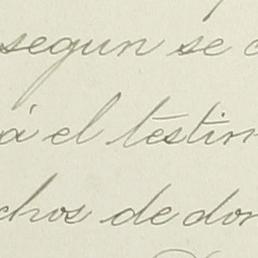 segun se c
á el testim
chos de don